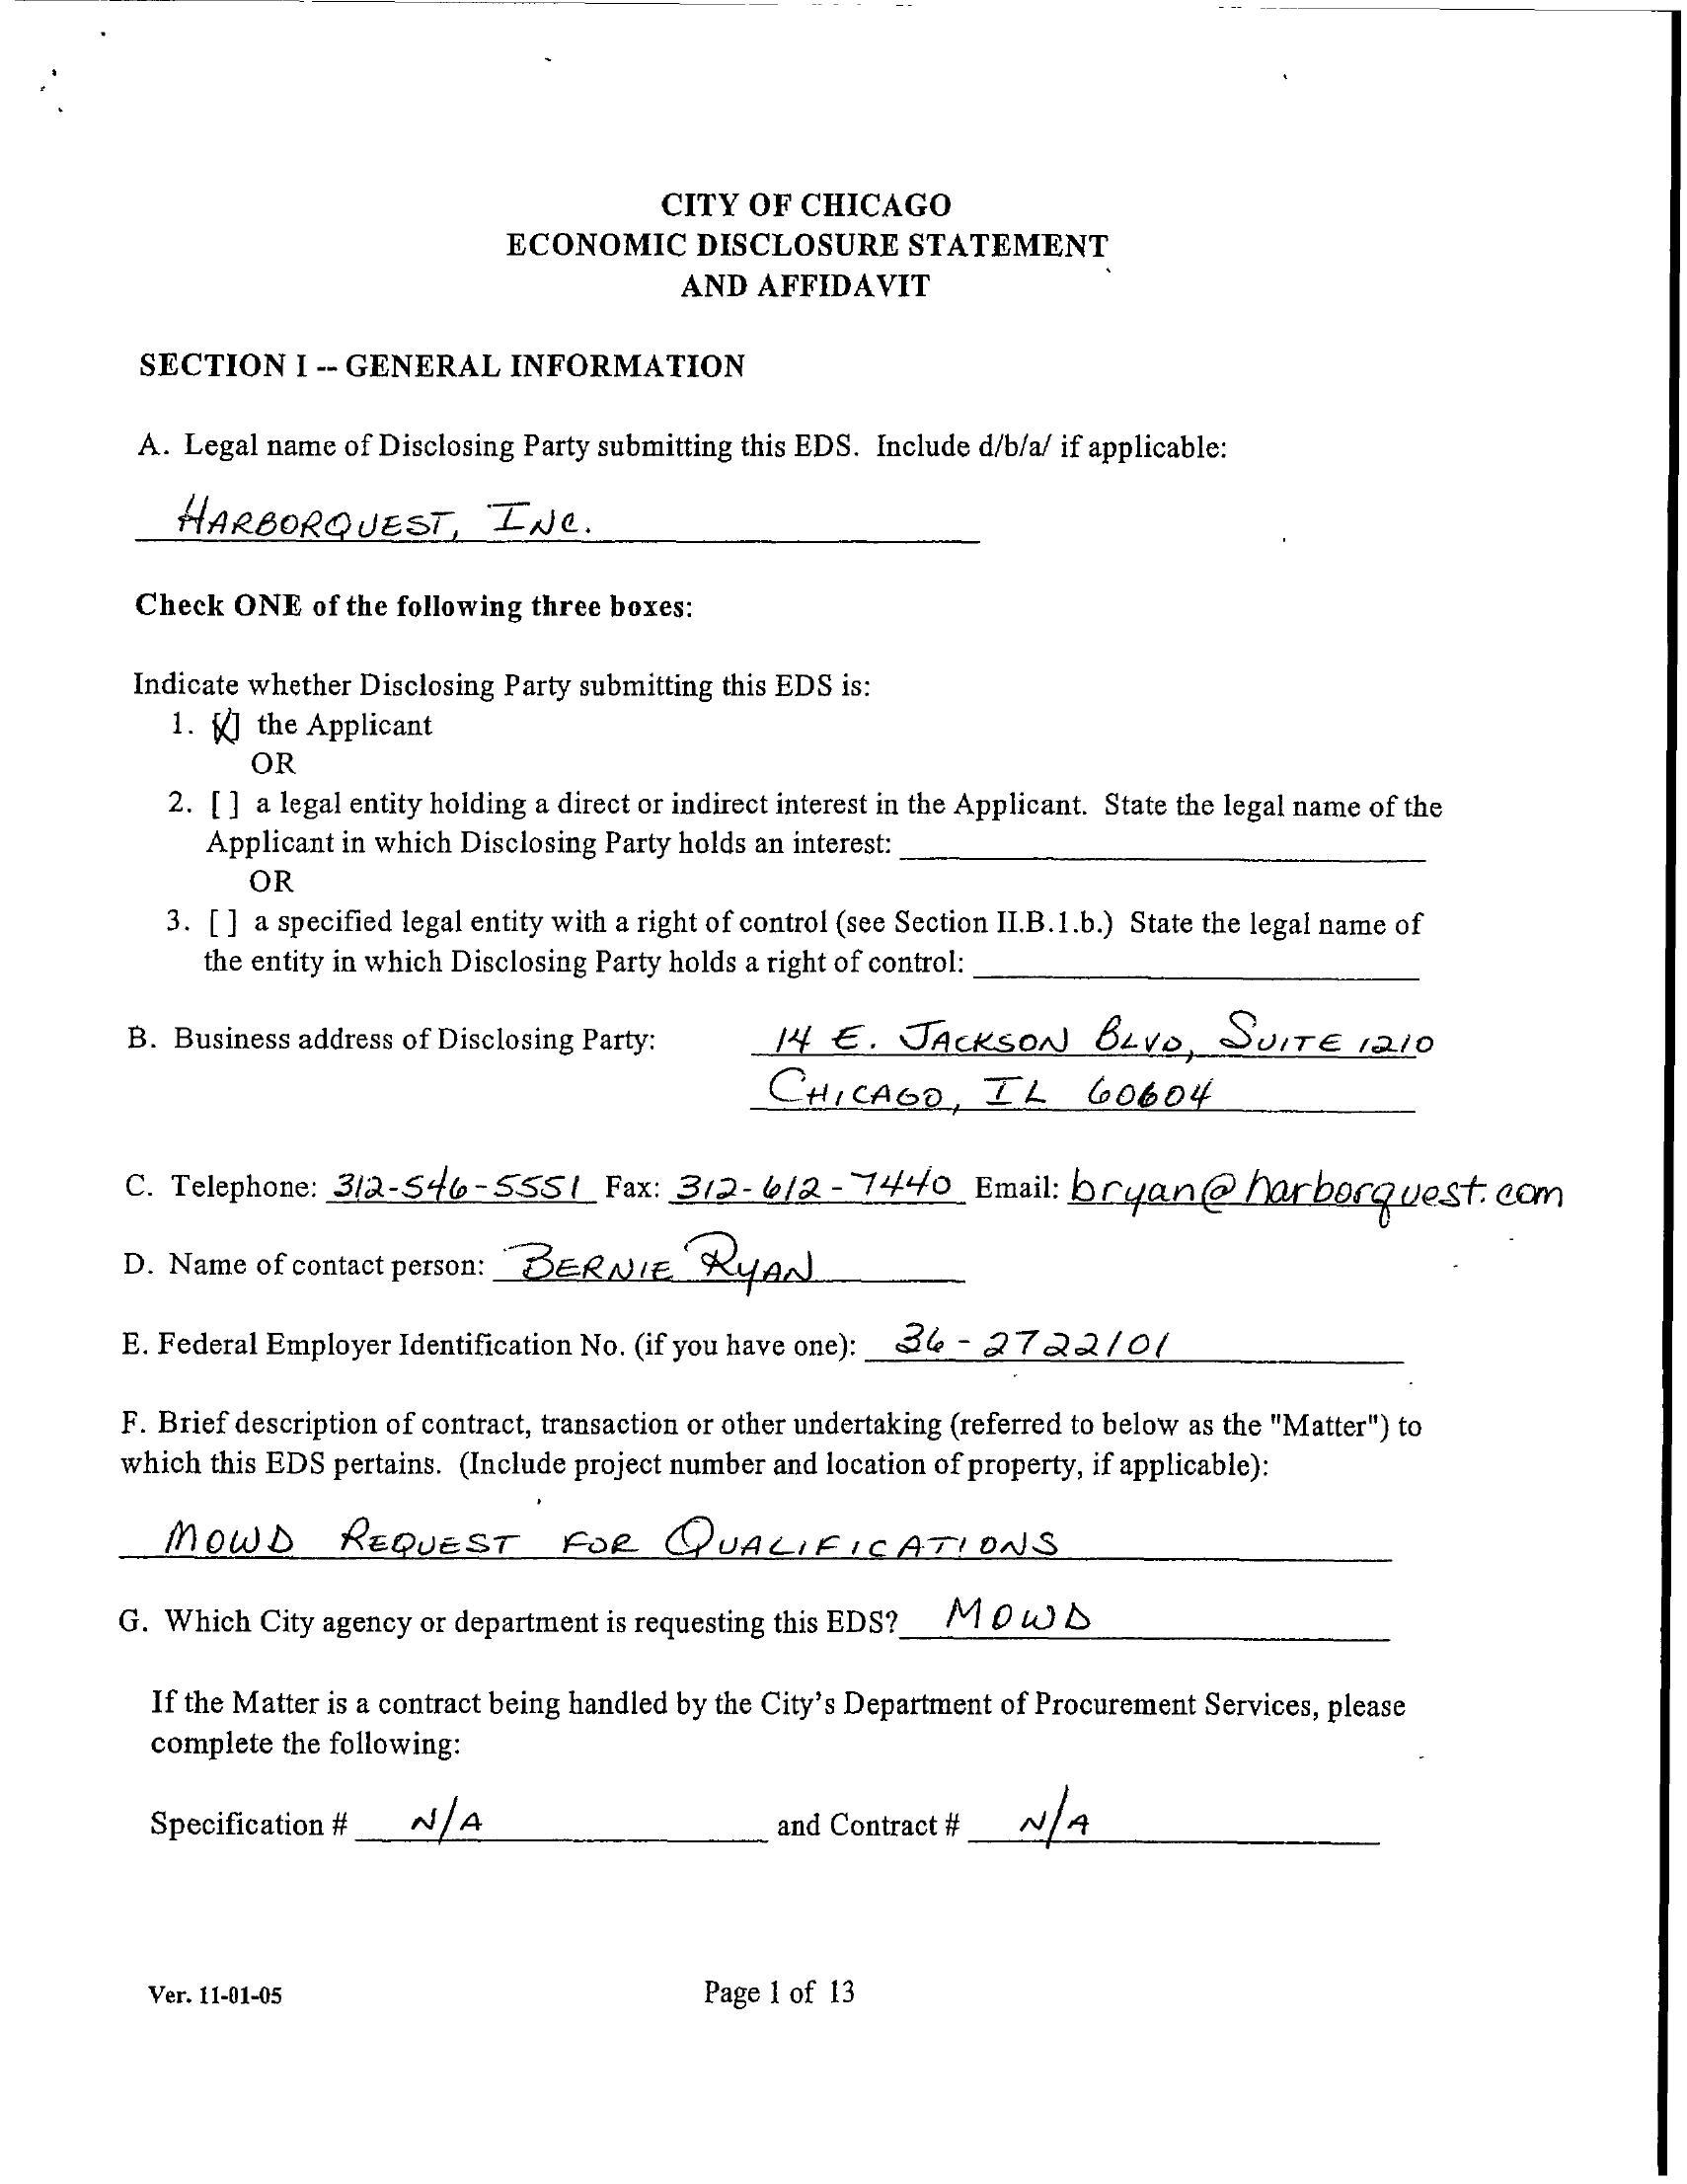 CITY OF CHICAGO
ECONOMIC DISCLOSURE STATEMENT
AND AFFIDAVIT
SECTION I -- GENERAL INFORMATION
A. Legal name of Disclosing Party submitting this EDS. Include d/b/a/ if applicable:
HARBORQUEST, INC.
Check ONE of the following three boxes:
Indicate whether Disclosing Party submitting this EDS is:
1. [X] the Applicant
OR
2. [ ] a legal entity holding a direct or indirect interest in the Applicant. State the legal name of the
Applicant in which Disclosing Party holds an interest:
OR
3. [ ] a specified legal entity with a right of control (see Section II.B.1.b.) State the legal name of
the entity in which Disclosing Party holds a right of control:
B. Business address of Disclosing Party: 14 E. JACKSON BLVD, SUITE 1210
CHICAGO, IL 60604
C. Telephone: 312-546-5551 Fax: 312-612-7440 Email: bryan@harborquest.com
D. Name of contact person: BERNIE RYAN
E. Federal Employer Identification No. (if you have one): 36-2722101
F. Brief description of contract, transaction or other undertaking (referred to below as the "Matter") to
which this EDS pertains. (Include project number and location of property, if applicable):
MOWD REQUEST FOR QUALIFICATIONS
G. Which City agency or department is requesting this EDS? MOWD
If the Matter is a contract being handled by the City's Department of Procurement Services, please
complete the following:
Specification # N/A and Contract # N/A
Ver. 11-01-05 Page 1 of 13